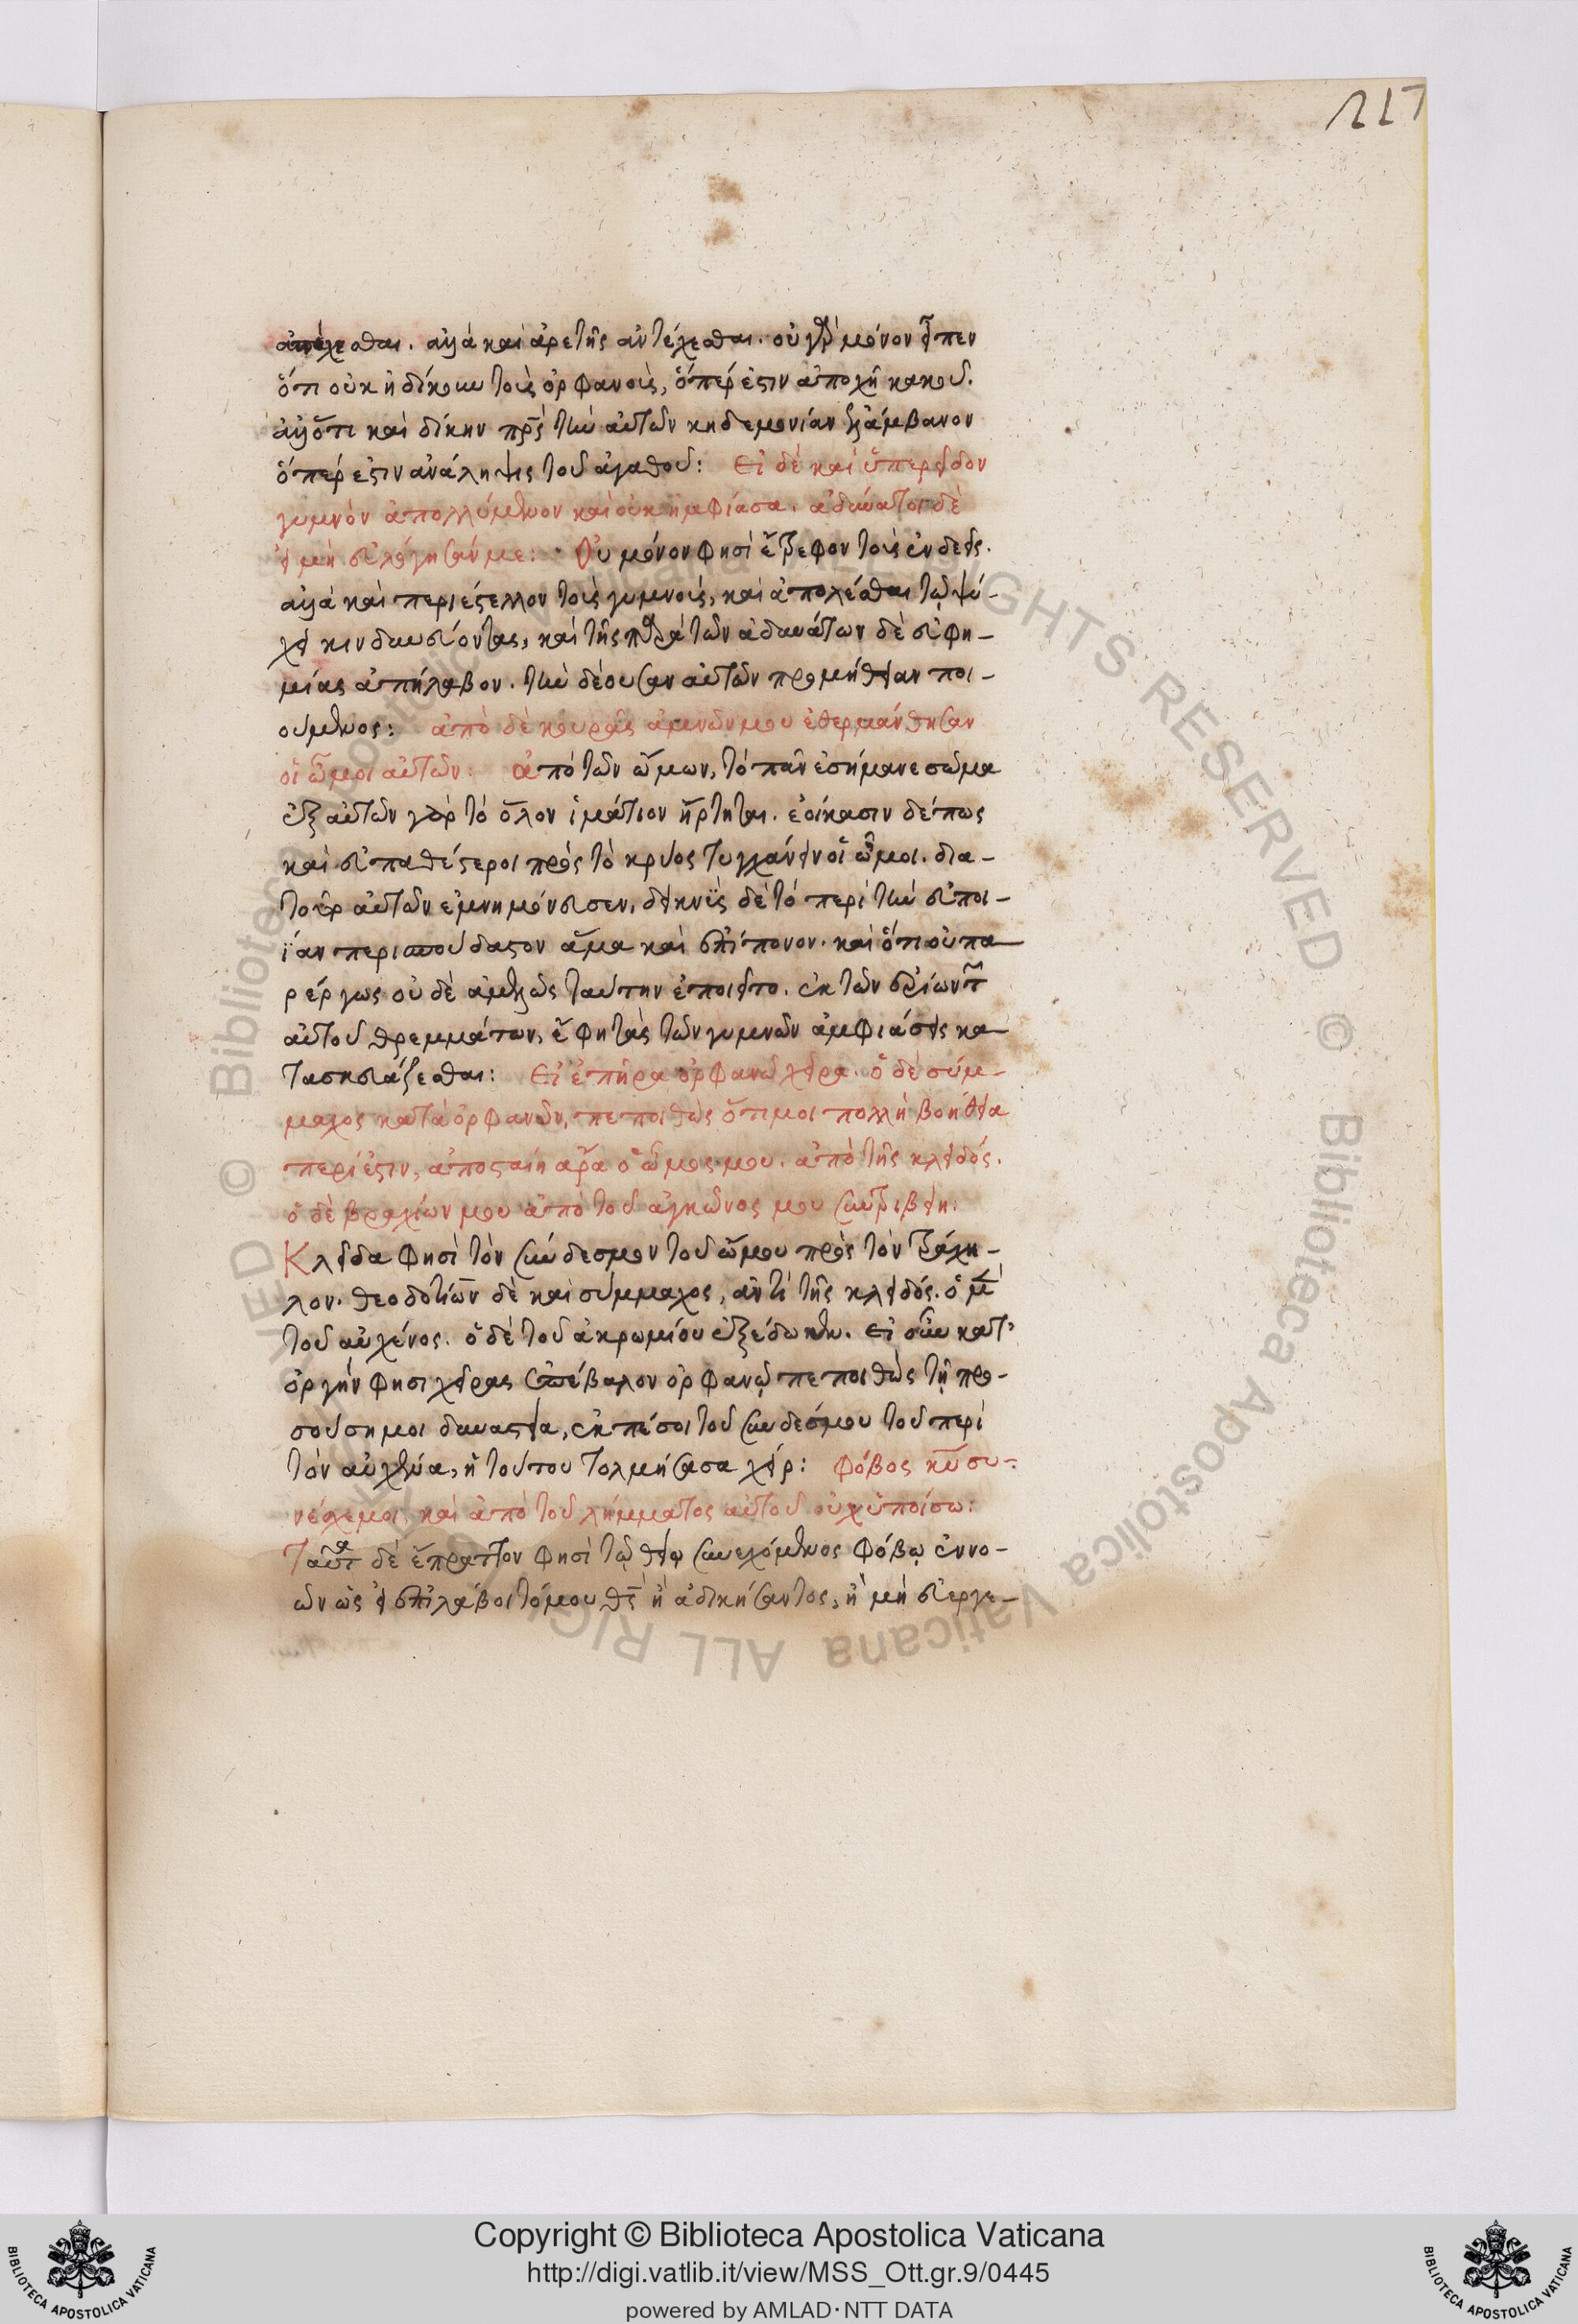 217
ἀπέχεσθαι. ἀλλὰ καὶ ἀρετῆς ἀντέχεσθαι. οὐ γὰρ μόνον εἶπεν
ὅτι οὐκ ἠδίκουν τοὺς ὀρφανούς, ὅπέρ ἐστιν ἀποχὴ κακοῦ.
ἀλλ' ὅτι καὶ δίκην πρς τὴν αὐτῶν κηδεμονίαν ἐλάμβανον
ὅπέρ ἐστιν ἀνάληψις τοῦ ἀγαθοῦ: Εἰ δὲ καὶ ὑπερεῖδον
γυμνὸν ἀπολλύμενον καὶ οὐκ ἠμφίασα. ἀδύνατοι δὲ
εἰ μὴ εὐλόγησάν με: Οὐ μόνον φησὶ ἔτρεφον τοὺς ἐνδεεῖς.
ἀλλὰ καὶ περιέστελλον τοὺς γυμνούς, καὶ ἀπολέσθαι τῷ ψύ-
χει κινδυνεύοντας, καὶ τῆς παρὰ τῶν ἀδυνάτων δὲ εὐφη-
μίας ἀπήλαβον. τὴν δέουσαν αὐτῶν προμήθειαν ποι-
ούμενος: ἀπὸ δὲ κουρᾶς ἀμνῶν μου ἐθερμάνθησαν
οἱ ὦμοι αὐτῶν: ἀπὸ τῶν ὤμων, τὸ πᾶν ἐσήμανε σῶμα
ἐξ αὐτῶν γὰρ τὸ ὅλον ἱμάτιον ἤρτηται. ἐοίκασιν δέ πως
καὶ εὐπαθέστεροι πρὸς τὸ κρύος τυγχάνειν οἱ ὦμοι. δια-
τοῦτο αὐτῶν ἐμνημόνευσεν, δεικνὺς δὲ τὸ περὶ τὴν εὐποι-
ΐαν περισπούδαστον ἅμα καὶ ἐπίπονον. καὶ ὅτι οὐ πα-
ρέργως οὐδὲ ἀμελῶς ταύτην ἐποιεῖτο. ἐκ τῶν ἐρίων τῶν
αὐτοῦ θρεμμάτων, ἔφη τὰς τῶν γυμνῶν ἀμφιάσεις κα-
τασκευάζεσθαι: Εἰ ἐπῆρα ὀρφανῷ χεῖρα. ὁ δὲ σύμ-
μαχος κατὰ ὀρφανῶν, πεποιθὼς ὅτι μοι πολλὴ βοήθεια
περίεστιν, ἀποσταίη ἄρα ὁ ὦμος μου. ἀπὸ τῆς κλειδός.
ὁ δὲ βραχίων μου ἀπὸ τοῦ ἀγκῶνος μου συντριβείη:
Κλεῖδα φησὶ τὸν σύνδεσμον τοῦ ὤμου πρὸς τὸν τράχη-
λον. θεοδοτίων δὲ καὶ σύμμαχος, ἀντὶ τῆς κλειδός. ὁ μὲν
τοῦ αὐχένος. ὁ δὲ τοῦ ἀκρωμίου ἐξέδωκεν. Εἰ οὖν κατ'
ὀργήν φησι χεῖρας ἐπέβαλον ὀρφανῷ πεποιθὼς τῇ προ-
σούσῃ μοι δυναστεία, ἐκπέσοι τοῦ συνδεσμου τοῦ περὶ
τὸν αὐχένα, ἡ τούτου τολμήσασα χείρ: Φόβος κυ συ-
νέσχε μοι, καὶ ἀπὸ τοῦ λήμματος αὐτοῦ οὐχ ὑποίσω:
Ταῦτα δὲ ἔπραττον φησὶ τῷ θείῳ συνεχόμενος φόβῳ ἐννο-
ῶν ὡς εἰ ἐπιλάβοιτό μου θς ἢ ἀδικήσαντος, ἢ μὴ εὐεργε-
Copyright © Biblioteca Apostolica Vaticana
http://digi.vatlib.it/view/MSS_Ott.gr.9/0445
powered by AMLAD·NTT DATA